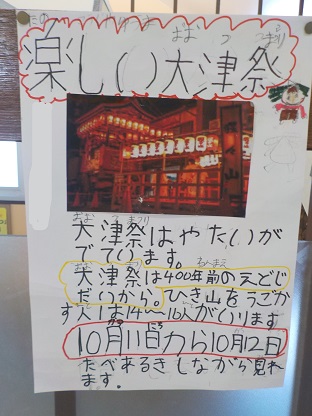 楽しい大津祭
大津祭はやたいが
でています。
大津祭は400年前のえどじ
だいから。ひき山をうごか
す人は14〜16人がいります
10月11日から10月12日
たべあるきしながら見れ
ます。